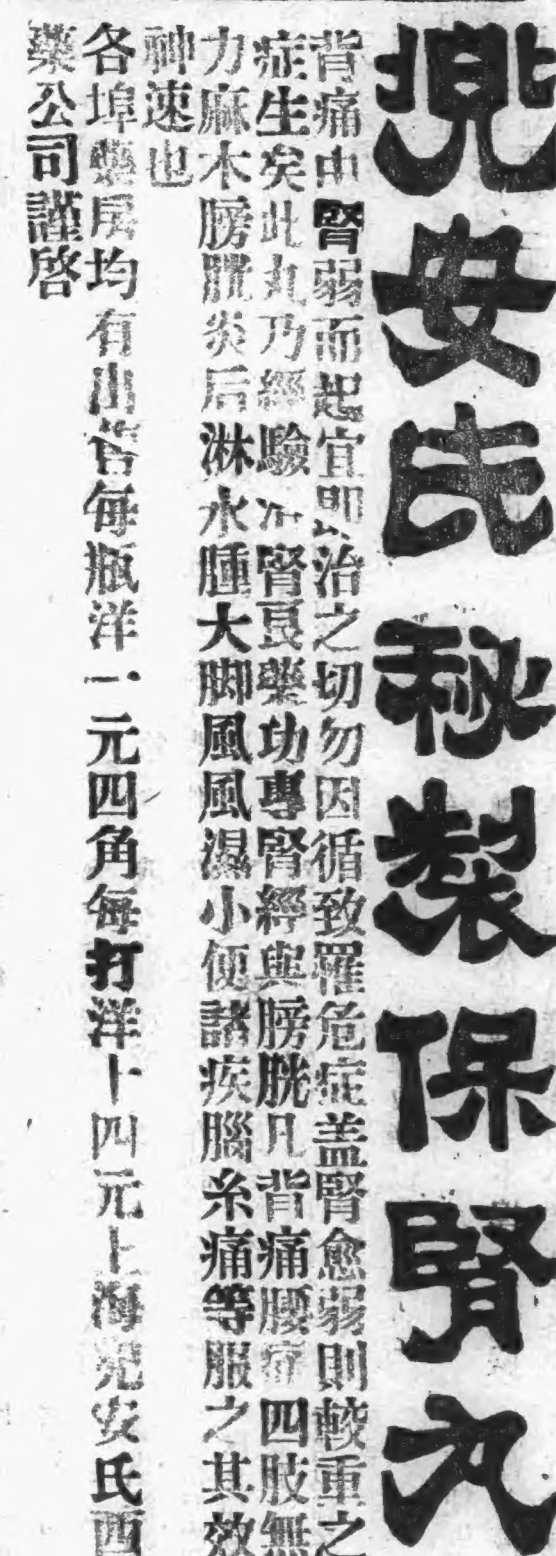 兜安氏秘製保腎丸
背痛由腎弱而起宜即治之切勿因循致罹危症盖腎愈弱則較重之
症生矣此丸乃經驗治腎良藥功專腎經與膀胱凡背痛腰症四肢無
力麻木膀胱炎后淋水腫大脚風風濕小便諸疾腦糸痛等服之其效
神速也
各埠藥房均有出售每瓶洋一元四角每打洋十四元上海兜安氏西
藥公司謹啓